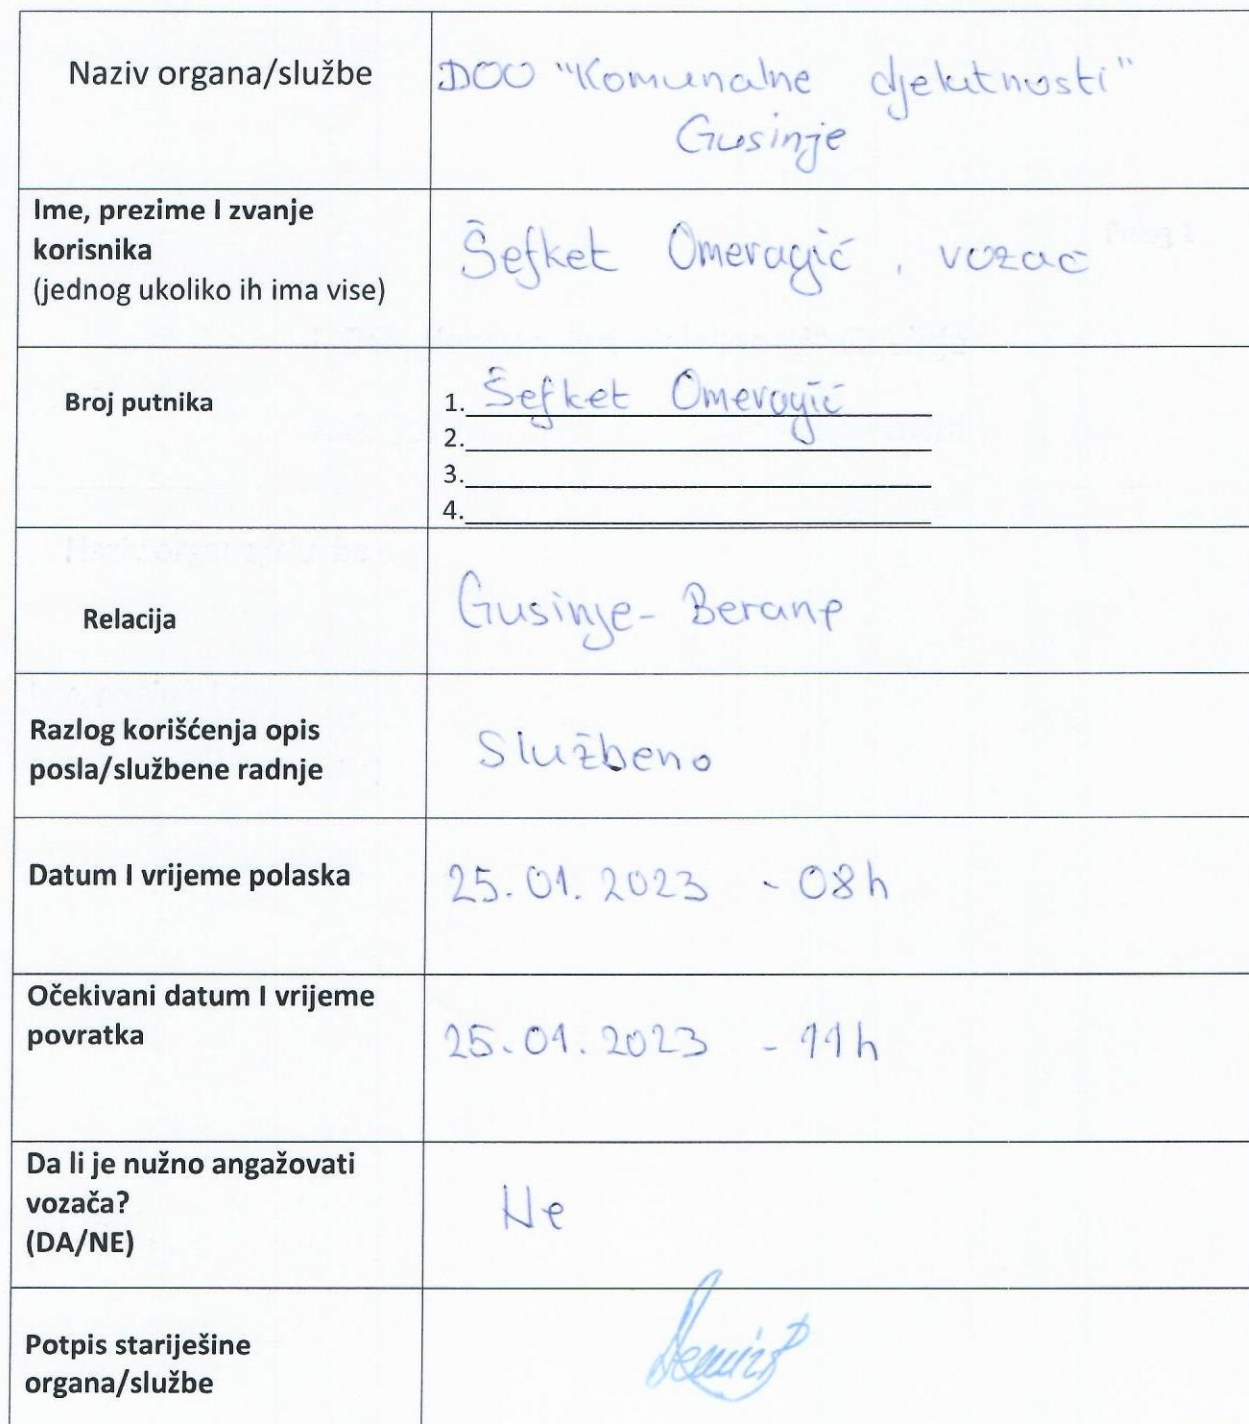 Naziv organa/službe
DOO "Komunalne djelatnosti"
Gusinje
Ime, prezime I zvanje
korisnika
(jednog ukoliko ih ima vise)
Šefket Omeragić, vozač
Broj putnika
1. Šefket Omeragić
2.
3.
4.
Relacija
Gusinje - Berane
Razlog korišćenja opis
posla/službene radnje
Službeno
Datum I vrijeme polaska
25.01.2023 - 08h
Očekivani datum I vrijeme
povratka
25.01.2023 - 11h
Da li je nužno angažovati
vozača?
(DA/NE)
Ne
Potpis starješine
organa/službe